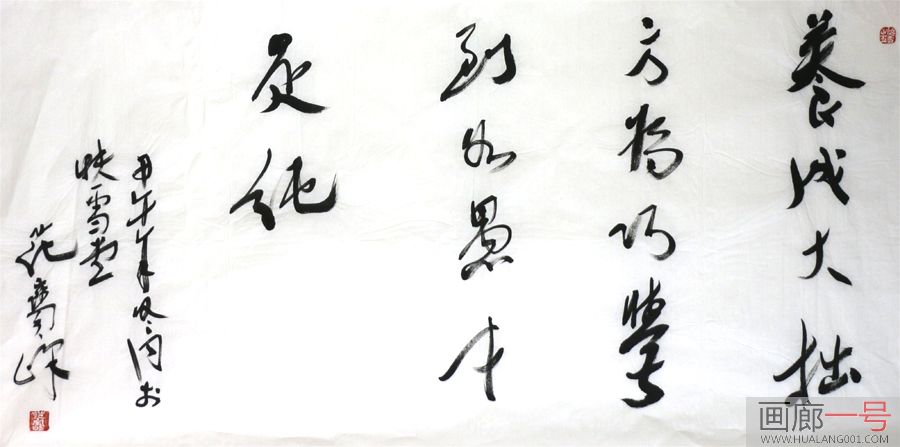 養成大拙
方為巧學
到如愚才
是純
甲午年冬月於
映雪堂
范 峰
画廊一号
WWW.HUALANG001.COM